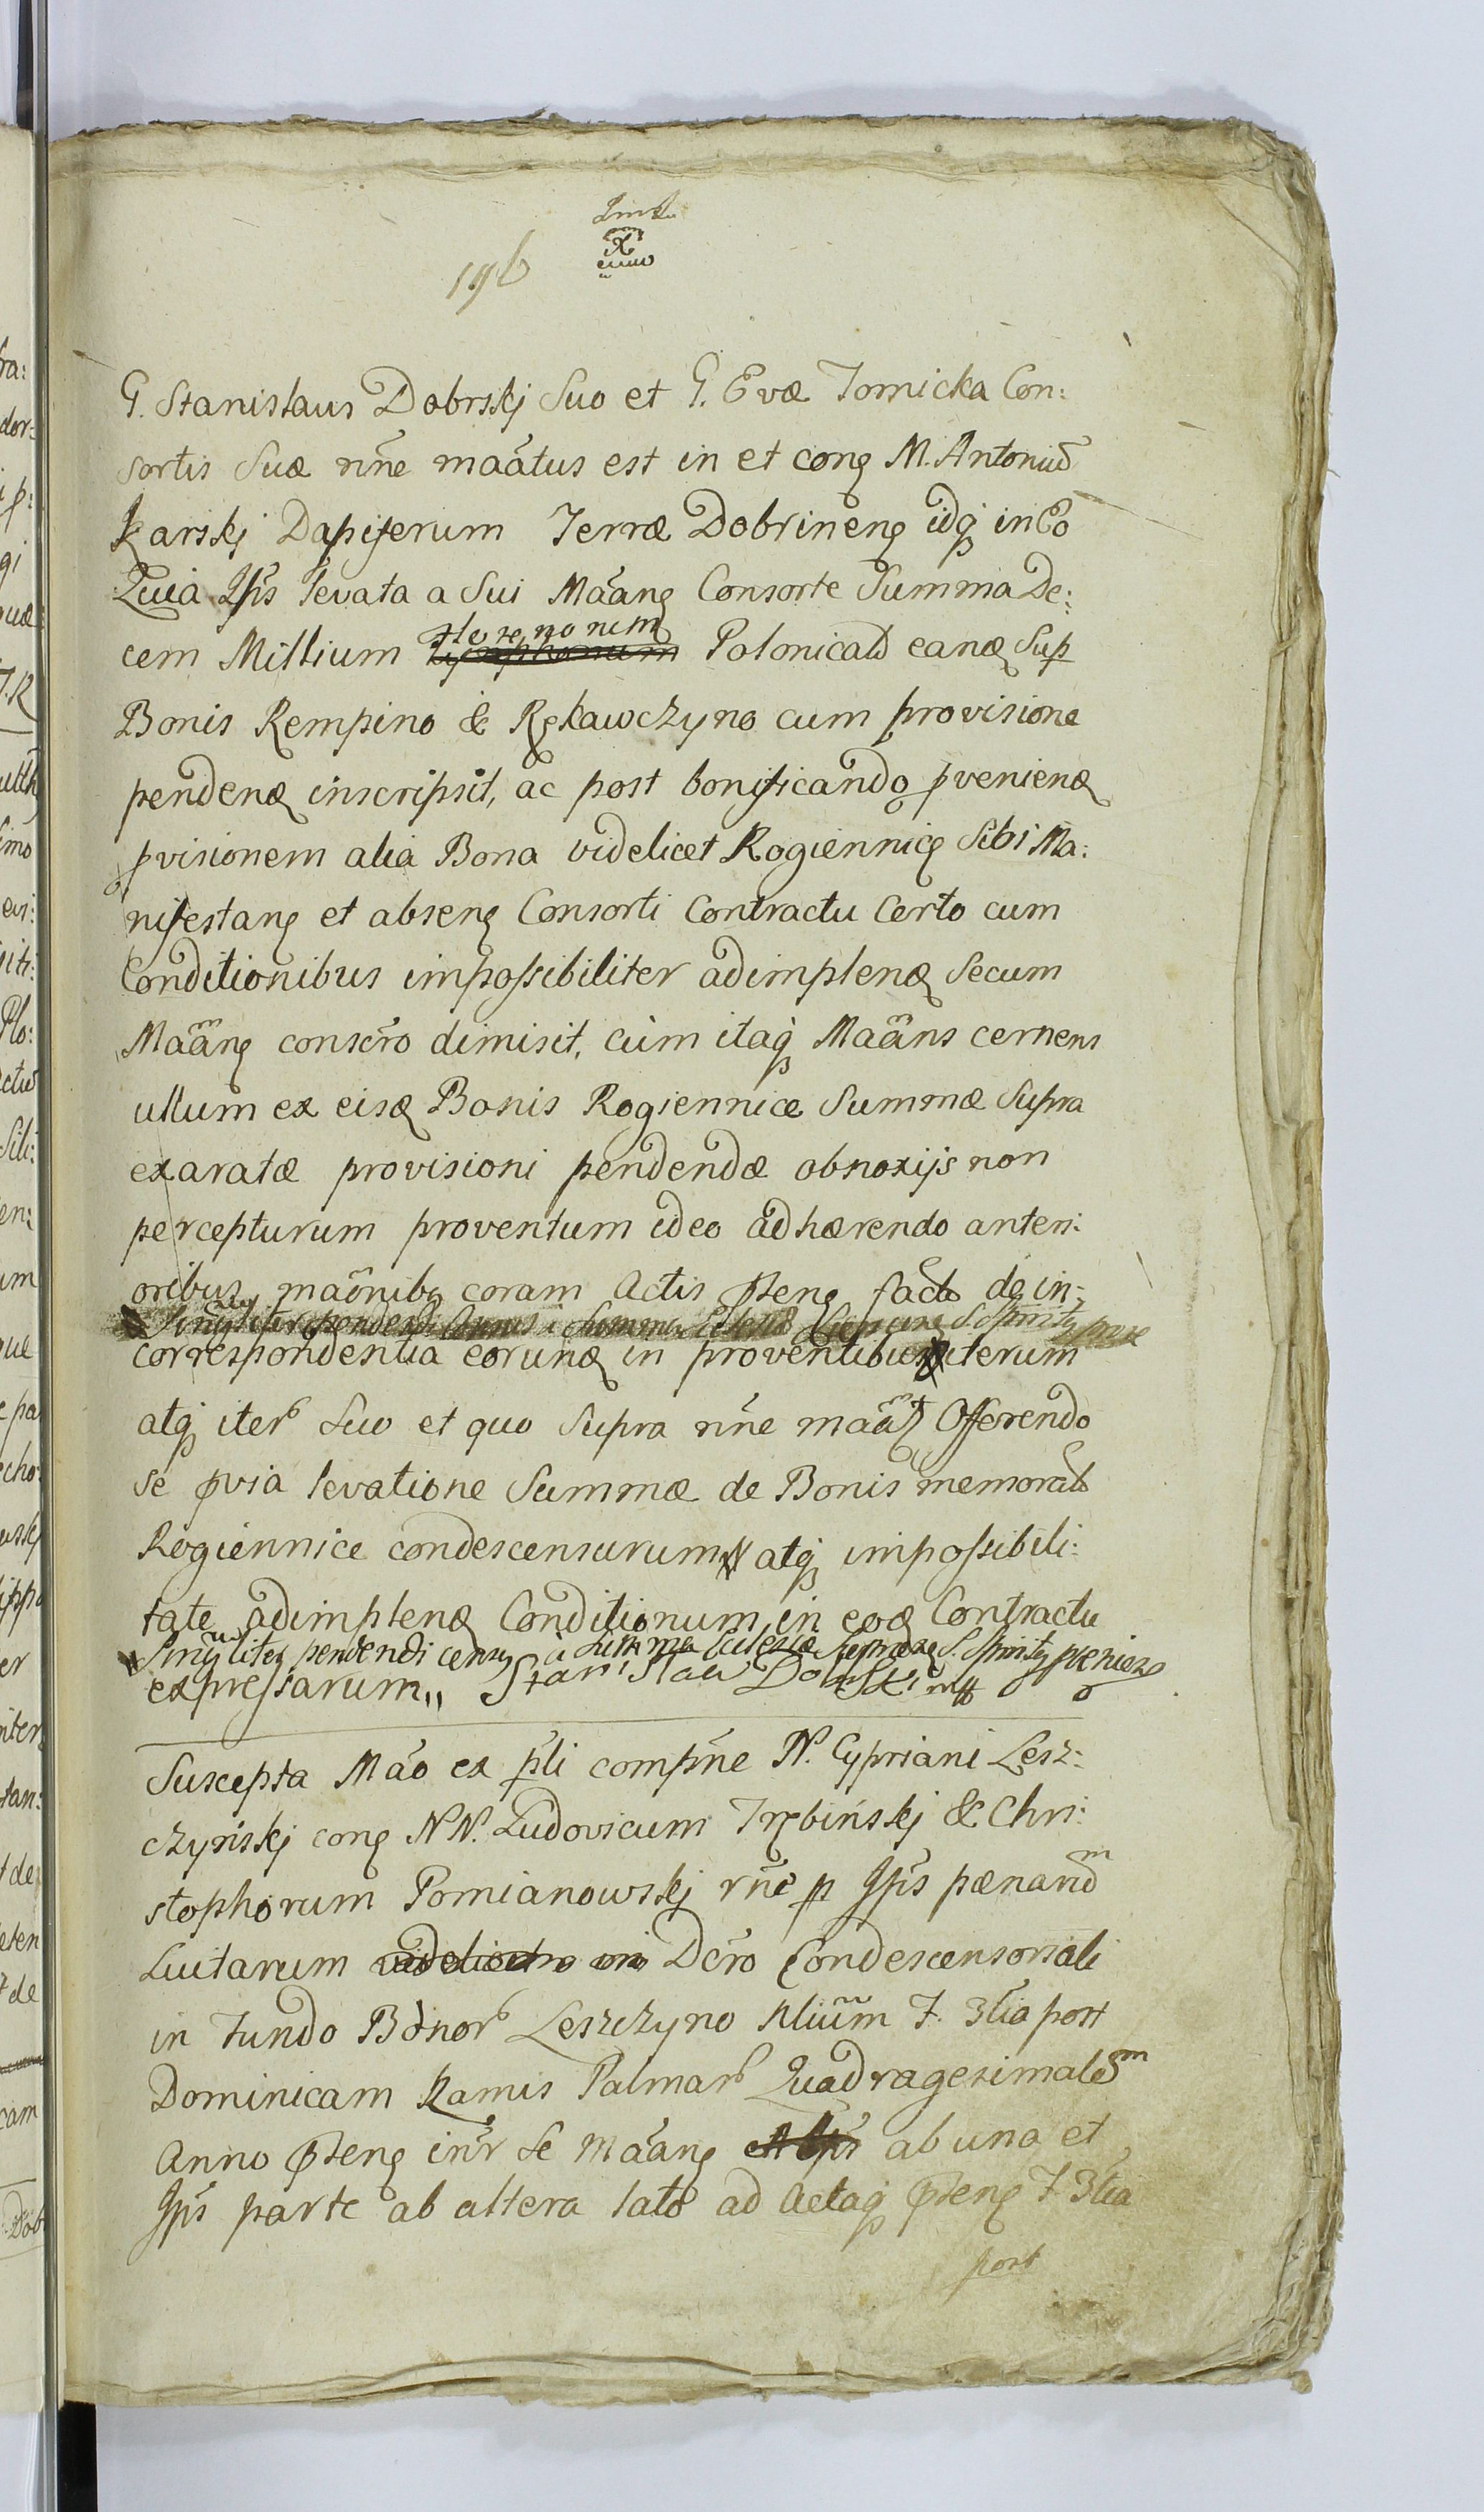 196
G. Stanislaus Dobrskj Suo et G. Evæ Tomicka Con:
sortis Suæ nñe maãtus est in et cong M. Antoniũ
Karskj Dapiferum Terræ Dobrineng idq in Eo
Quia Ips levata a Sui Maãng Consorte Summa De:
cem Millium florenorum Polonicalũ eanđ Sup
Bonis Rempino & Rękawczyno cum provisione
pendenđ inscripsit, ac post bonificando pvenienđ
pvisionem alia Bona videlicet Rogiennicę Sibi Ma:
nifestang et abseng Consorti Contractu Certo cum
Conditionibus impossibiliter adimplenđ Secum
Maãng conscr̃o dimisit, cùm itaq Maãns cernens
ullum ex eisđ Bonis Rogiennice Summæ Supra
exaratæ provisioni pendendæ obnoxijs non
percepturum proventum ideo adhærendo anteri:
oribus maõnibg coram Actis pteng fact de in:
correspondentia eorunđ in proventibus iterum
atq iter Suo et quo Supra nñe maãt Offerendo
se pvia levatione Summæ de Bonis memorat
Rogiennice condescensurum atq impossibili:
tate adimplenđ Conditionum in eođ Contractu
pendendi Summa Eclesiæ
expressarum„ Stanislaw Dobrski mp
Suscepta Mão ex pli compñe N. Cypriani Lesz:
czyńskj cong NN. Ludovicum Trębińskj & Chri:
stophorum Pomianowskj rñe p Ips pænarũm
Luitarum Dcr̃o Condescensoriali
in Fundo Bonor Leszczyno F. 3tia post
Dominicam Ramis Palmar Quadragesimalem
Anno pteng int̃r Se Maãng ab una et
Ips parte ab altera lato ad Actaq pteng F 3tia
post